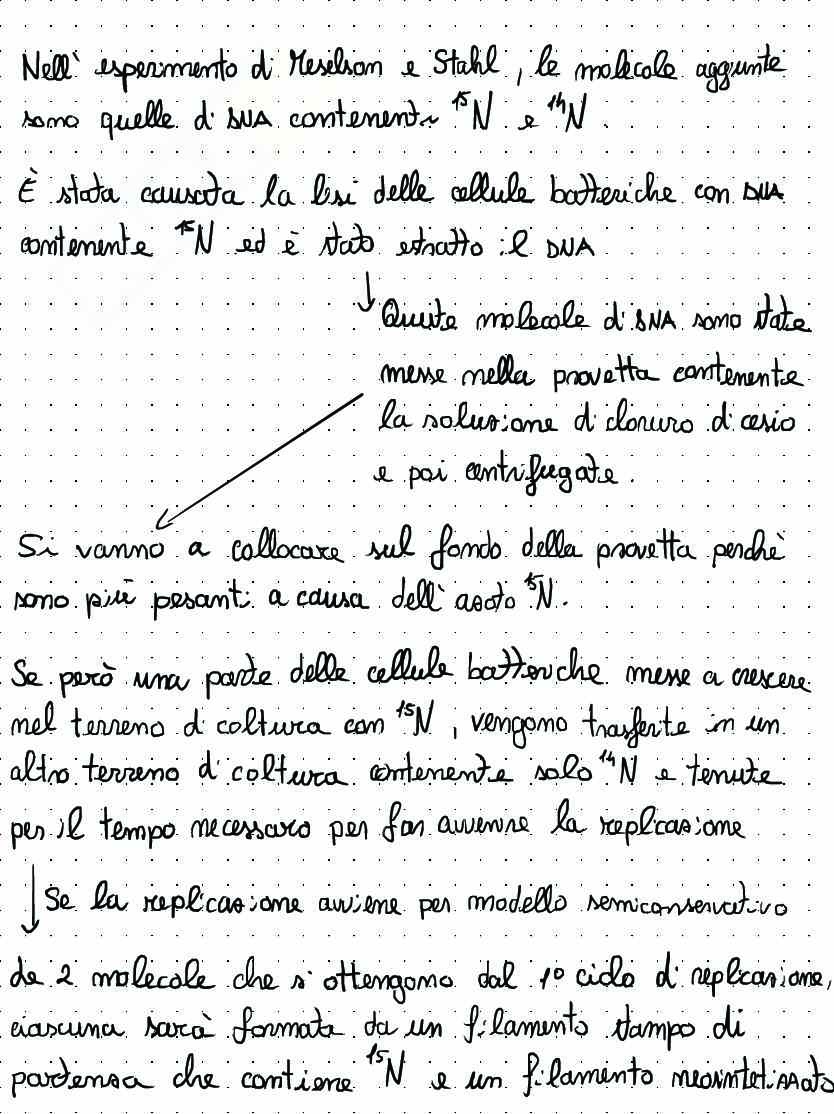 Nell' esperimento di Meselson e Stahl, le molecole aggiunte
sono quelle di DNA contenenti ¹⁵N e ¹⁴N.
È stata causata la lisi delle cellule batteriche con DNA
contenente ¹⁵N ed è stato estratto il DNA
Queste molecole di DNA sono state
messe nella provetta contenente
la soluzione di cloruro di cesio
e poi centrifugate.
Si vanno a collocare sul fondo della provetta perchè
sono più pesanti a causa dell' azoto ¹⁵N.
Se però una parte delle cellule batteriche messe a crescere
nel terreno di coltura con ¹⁵N, vengono trasferite in un
altro terreno di coltura contenente solo ¹⁴N e tenute
per il tempo necessario per far avvenire la replicazione
Se la replicazione avviene per modello semiconservativo
le 2 molecole che si ottengono dal 1° ciclo di replicazione,
ciascuna sarà formata da un filamento stampo di
partenza che contiene ¹⁵N e un filamento neosintetizzato